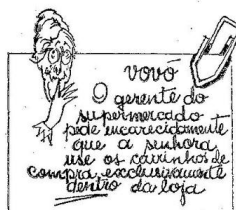 vovó
O gerente do
supermercado
pede encarecidamente
que a senhora
use os carrinhos de
compra exclusivamente
dentro da loja